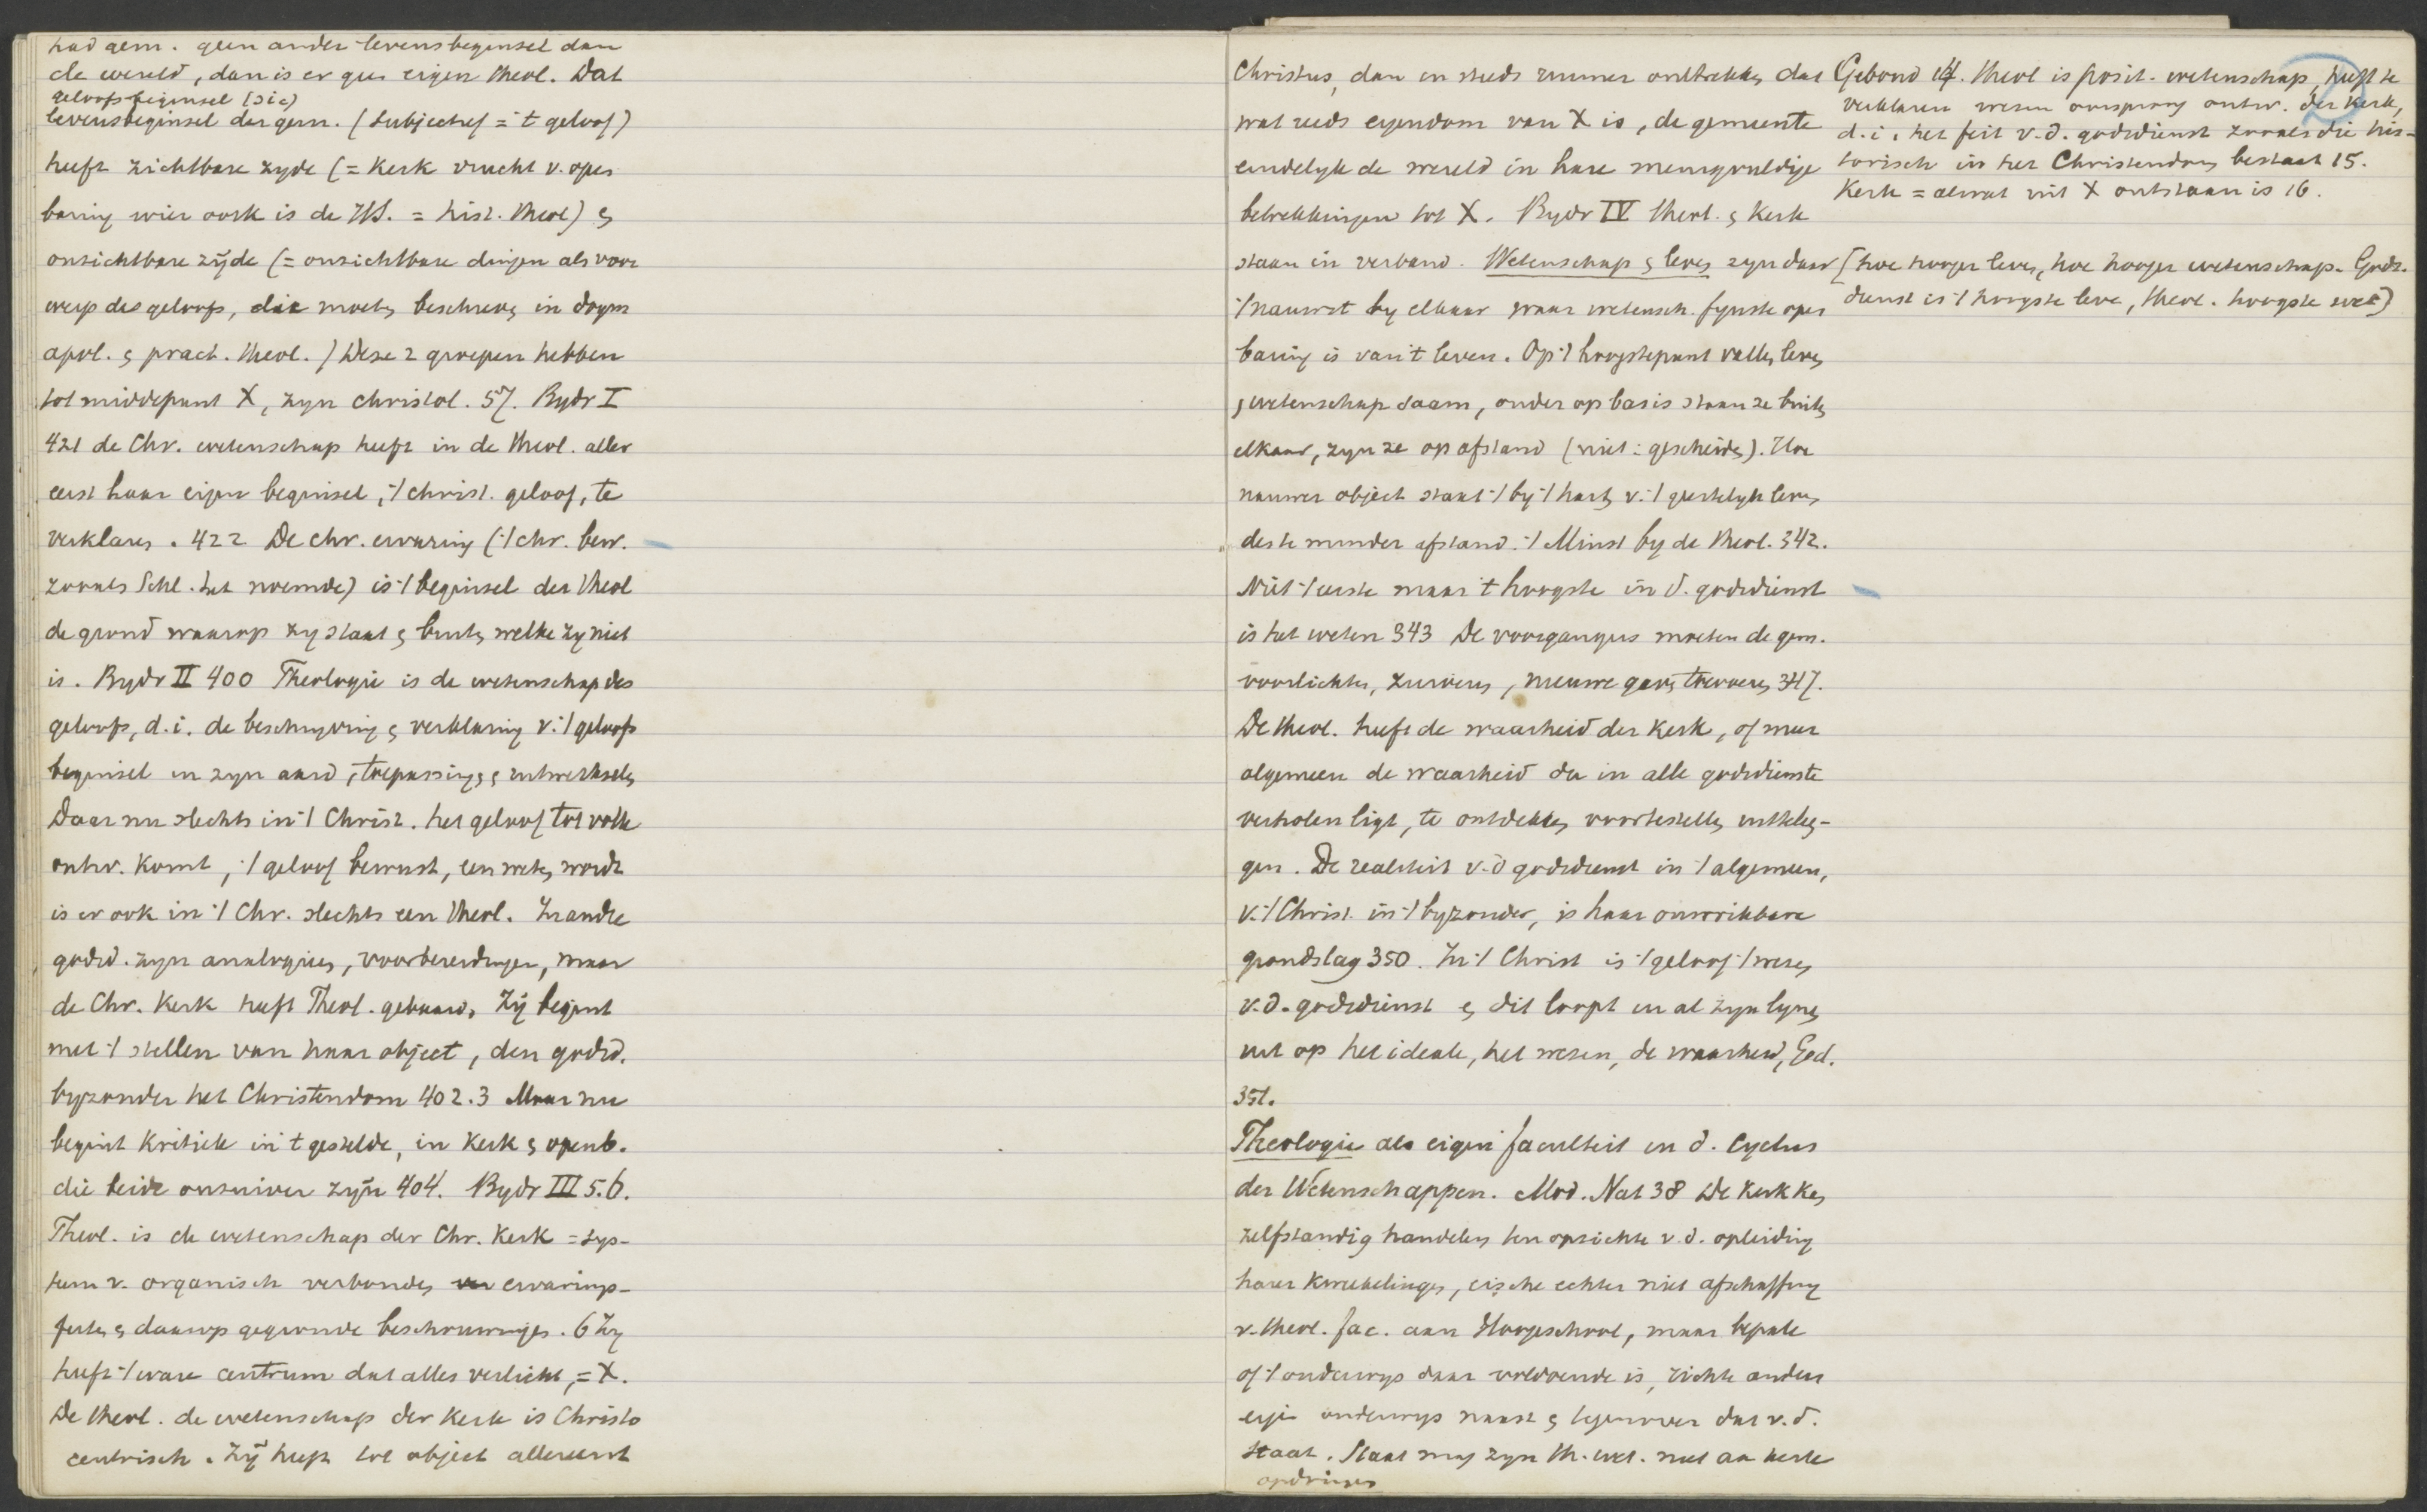 had gem. geen ander levensbeginsel dan
de wereld, dan is er geen eigen theol. Dat
geloofsbeginsel (sic)
levensbeginsel der gem. (subjectief = 't geloof)
heeft zichtbare zyde (= Kerk vrucht v. open
baring wier oork is de HS. = hist. theol) &
onzichtbare zijde (= onzichtbare dingen als voor
werp des geloofs, die moeten beschreven in dogm
apol. & pract. theol.) Deze 2 groepen hebben
tot middepunt X, zyn christol. 57. Bydr I
421 de Chr. wetenschap heeft in de theol. aller
eerst haar eigen beginsel, 't christ. geloof, te
verklaren. 422 De chr. ervaring ('t chr. bew.
zooals Schl. het noemde) is 't beginsel der theol
de grond waarop zy staat & buiten welke zy niet
is. Bydr II 400 Theologie is de wetenschap des
geloofs, d.i. de beschryving & verklaring v. 't geloofs
beginsel in zyn aard, toepassingen & uitwerkselen
Daar nu slechts in 't Christ. het geloof tot volle
ontw. komt, 't geloof bewust, een weten wordt
is er ook in 't Chr. slechts een theol. In andre
godsd. zyn analogieen, voorbereidingen, maar
de Chr. Kerk heeft Theol. gebaard. Zij begint
met 't stellen van haar object, den godsd.
byzonder het Christendom 402.3 Maar nu
begint Kritiek in 't gestelde, in Kerk & openb.
die beide onzuiver zijn 404. Bydr III 5.6.
Theol. is de wetenschap der Chr. Kerk = sys-
teem v. organisch verbonden ervarings-
feiten & daarop gegronde beschouwingen. 6 Zy
heeft 't ware centrum dat alles verlicht, = X.
De theol. de wetenschap der Kerk is Christo
centrisch. Zij heeft tot object allereerst
Christus, dan en steeds ruimer ontrekken dat
wat reeds eigendom van X is, de gemeente
eindelyk de wereld in hare menigvuldige
betrekkingen tot X. Bydr IV theol. & Kerk
staan in verband. Wetenschap & leven zyn daar
't nauwst by elkaar waar wetensch. fynste open
baring is van 't leven. Op 't hoogstepunt vallen leven
& wetenschap saam, onder op basis staan ze buiten
elkaar, zyn ze op afstand (niet: gescheiden). Hoe
nauwer object staat 't by 't hart v. 't geestelyk leven
des te minder afstand. 't Minst by de theol. 342.
Niet 't eerste maar 't hoogste in d. godsdienst
is het weten 343 De voorgangers moeten de gem.
voorlichten, zuiveren, nieuwe gaven toevoeren 347.
De theol. heeft de waarheid der Kerk, of meer
algemeen de waarheid die in alle godsdienste
verholen ligt, te ontdekken voortestellen uitteleg-
gen. De realiteit v. d godsdienst in 't algemeen,
v. 't Christ. in 't byzonder, is haar onwrikbare
grondslag 350. In 't Christ is 't geloof 't wezen
v. d. godsdienst & dit loopt in al zyn lynen
uit op het ideale, het wezen, de waarheid, God.
351.
Theologie als eigen faculteit in d. Cyclus
der Wetenschappen. Mod. Nat 38 De Kerk ken
zelfstandig handelen ten opzichte v. d. opleiding
harer Kweekelingen, eische echter niet afschaffing
v. theol. fac. aan Hoogeschool, maar bepale
of 't onderwys daar voldoende is, richte anders
eigen onderwys naast & tegenover dat v. d.
staat. Staat mag zyn th. wet. niet aan kerk
opdringen
Gebond 14. Theol is posit. wetenschap, heeft te
verklaren wezen oorsprong ontw. der Kerk,
d.i. het feit v. d. godsdienst zooals die his-
torisch in het Christendom bestaat 15.
Kerk = alwat uit X ontstaan is 16.
(hoe hooger leven, hoe hooger wetenschap. Gods-
dienst is 't hoogste leve, theol. hoogste wet)